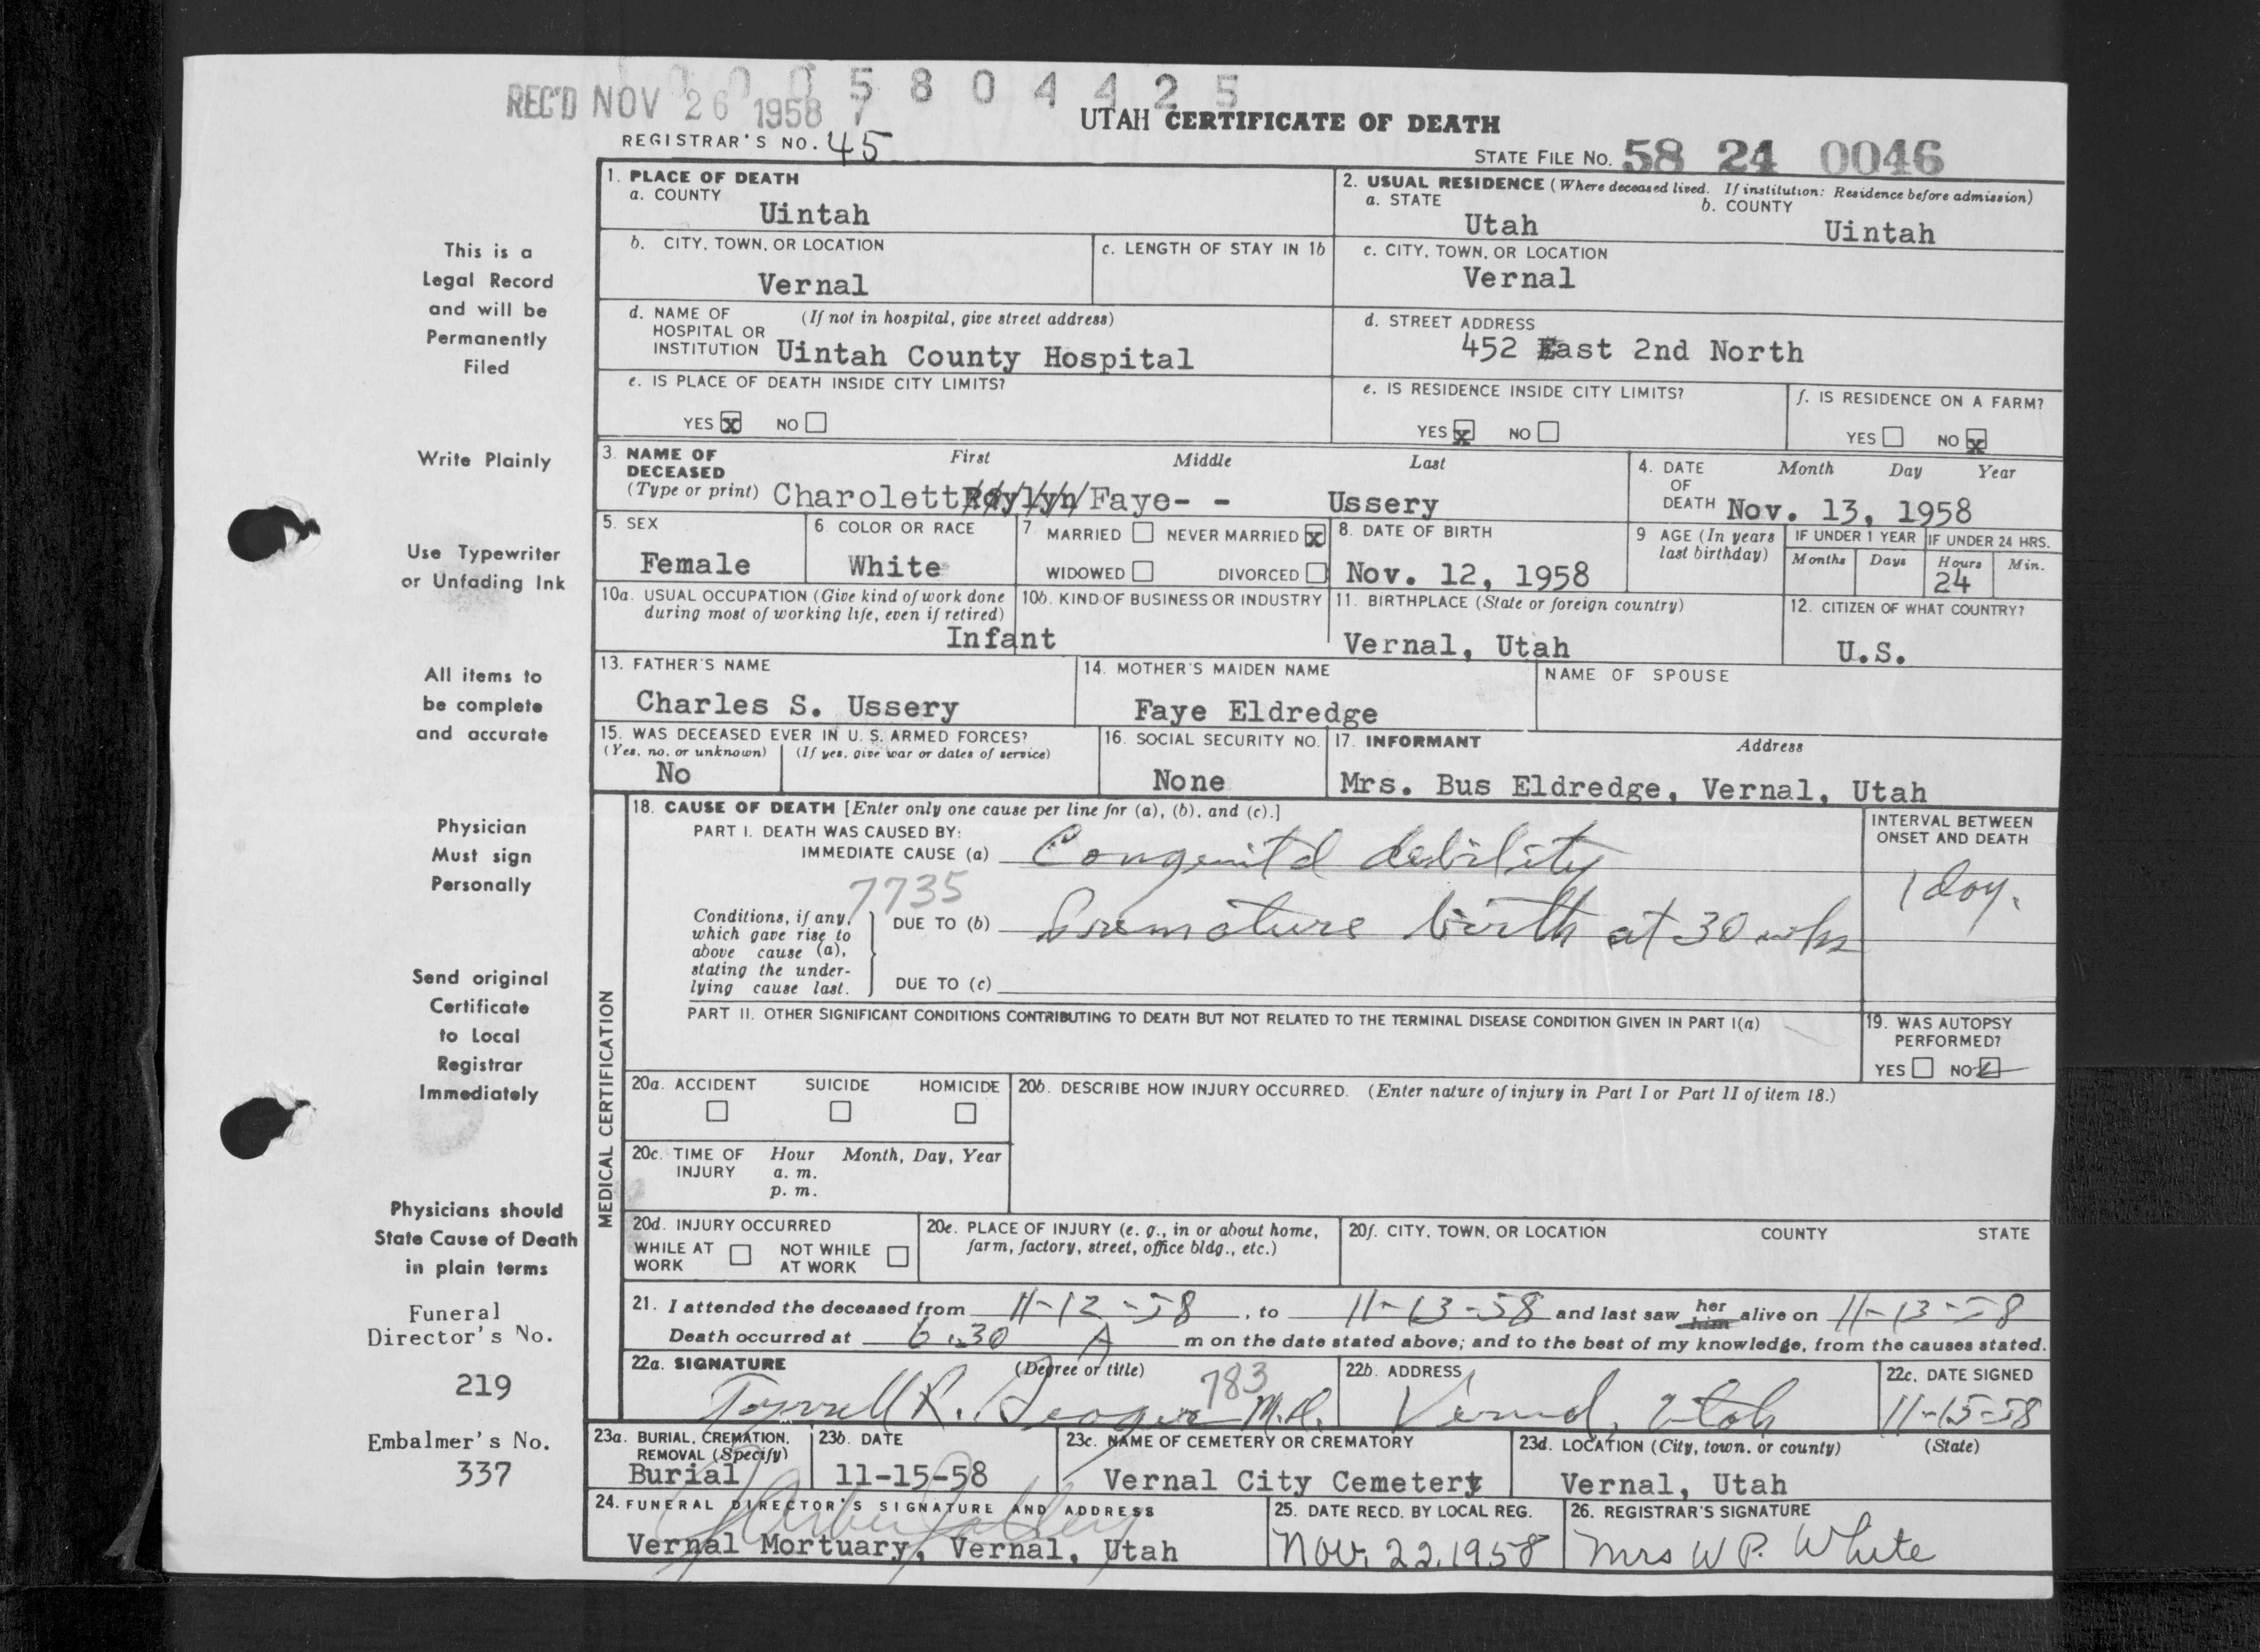 0 0 0 5 8 0 4 4 2 5
REC'D NOV 26 1958
UTAH CERTIFICATE OF DEATH
REGISTRAR'S NO. 45
STATE FILE NO. 58 24 0046
1. PLACE OF DEATH
a. COUNTY
Uintah
2. USUAL RESIDENCE (Where deceased lived. If institution: Residence before admission)
a. STATE
Utah
b. COUNTY
Uintah
b. CITY, TOWN, OR LOCATION
Vernal
c. LENGTH OF STAY IN 1b
c. CITY, TOWN, OR LOCATION
Vernal
d. NAME OF HOSPITAL OR INSTITUTION
(If not in hospital, give street address)
Uintah County Hospital
d. STREET ADDRESS
452 East 2nd North
e. IS PLACE OF DEATH INSIDE CITY LIMITS?
YES X NO
e. IS RESIDENCE INSIDE CITY LIMITS?
YES X NO
f. IS RESIDENCE ON A FARM?
YES NO X
3. NAME OF DECEASED
(Type or print)
First Middle Last
Charolett Raylyn Faye- - Ussery
4. DATE OF DEATH
Month Day Year
Nov. 13, 1958
5. SEX
Female
6. COLOR OR RACE
White
7. MARRIED NEVER MARRIED X
WIDOWED DIVORCED
8. DATE OF BIRTH
Nov. 12, 1958
9 AGE (In years last birthday)
IF UNDER 1 YEAR
Months Days
IF UNDER 24 HRS.
Hours Min.
24
10a. USUAL OCCUPATION (Give kind of work done
during most of working life, even if retired)
Infant
10b. KIND OF BUSINESS OR INDUSTRY
11. BIRTHPLACE (State or foreign country)
Vernal, Utah
12. CITIZEN OF WHAT COUNTRY?
U.S.
13. FATHER'S NAME
Charles S. Ussery
14. MOTHER'S MAIDEN NAME
Faye Eldredge
NAME OF SPOUSE
15. WAS DECEASED EVER IN U. S. ARMED FORCES?
(Yes, no, or unknown) (If yes, give war or dates of service)
No
16. SOCIAL SECURITY NO.
None
17. INFORMANT Address
Mrs. Bus Eldredge, Vernal, Utah
MEDICAL CERTIFICATION
18. CAUSE OF DEATH [Enter only one cause per line for (a), (b), and (c).]
PART I. DEATH WAS CAUSED BY:
IMMEDIATE CAUSE (a) Congenital debility
INTERVAL BETWEEN
ONSET AND DEATH
1 day.
7735
Conditions, if any,
which gave rise to
above cause (a),
stating the under-
lying cause last.
DUE TO (b) Premature birth at 30 wks
DUE TO (c)
PART II. OTHER SIGNIFICANT CONDITIONS CONTRIBUTING TO DEATH BUT NOT RELATED TO THE TERMINAL DISEASE CONDITION GIVEN IN PART I(a)
19. WAS AUTOPSY
PERFORMED?
YES NO
20a. ACCIDENT SUICIDE HOMICIDE
20b. DESCRIBE HOW INJURY OCCURRED. (Enter nature of injury in Part I or Part II of item 18.)
20c. TIME OF INJURY
Hour Month, Day, Year
a. m.
p. m.
20d. INJURY OCCURRED
WHILE AT WORK NOT WHILE AT WORK
20e. PLACE OF INJURY (e. g., in or about home,
farm, factory, street, office bldg., etc.)
20f. CITY, TOWN, OR LOCATION COUNTY STATE
21. I attended the deceased from 11-12-58, to 11-13-58 and last saw her him alive on 11-13-58
Death occurred at 6:30 A m on the date stated above; and to the best of my knowledge, from the causes stated.
22a. SIGNATURE (Degree or title)
R. Seager M.D.
783
22b. ADDRESS
Vernal, Utah
22c. DATE SIGNED
11-15-58
23a. BURIAL, CREMATION,
REMOVAL (Specify)
Burial
23b. DATE
11-15-58
23c. NAME OF CEMETERY OR CREMATORY
Vernal City Cemetery
23d. LOCATION (City, town, or county) (State)
Vernal, Utah
24. FUNERAL DIRECTOR'S SIGNATURE AND ADDRESS
Vernal Mortuary, Vernal, Utah
25. DATE RECD. BY LOCAL REG.
Nov. 22, 1958
26. REGISTRAR'S SIGNATURE
Mrs W P. White
This is a
Legal Record
and will be
Permanently
Filed
Write Plainly
Use Typewriter
or Unfading Ink
All items to
be complete
and accurate
Physician
Must sign
Personally
Send original
Certificate
to Local
Registrar
Immediately
Physicians should
State Cause of Death
in plain terms
Funeral
Director's No.
219
Embalmer's No.
337